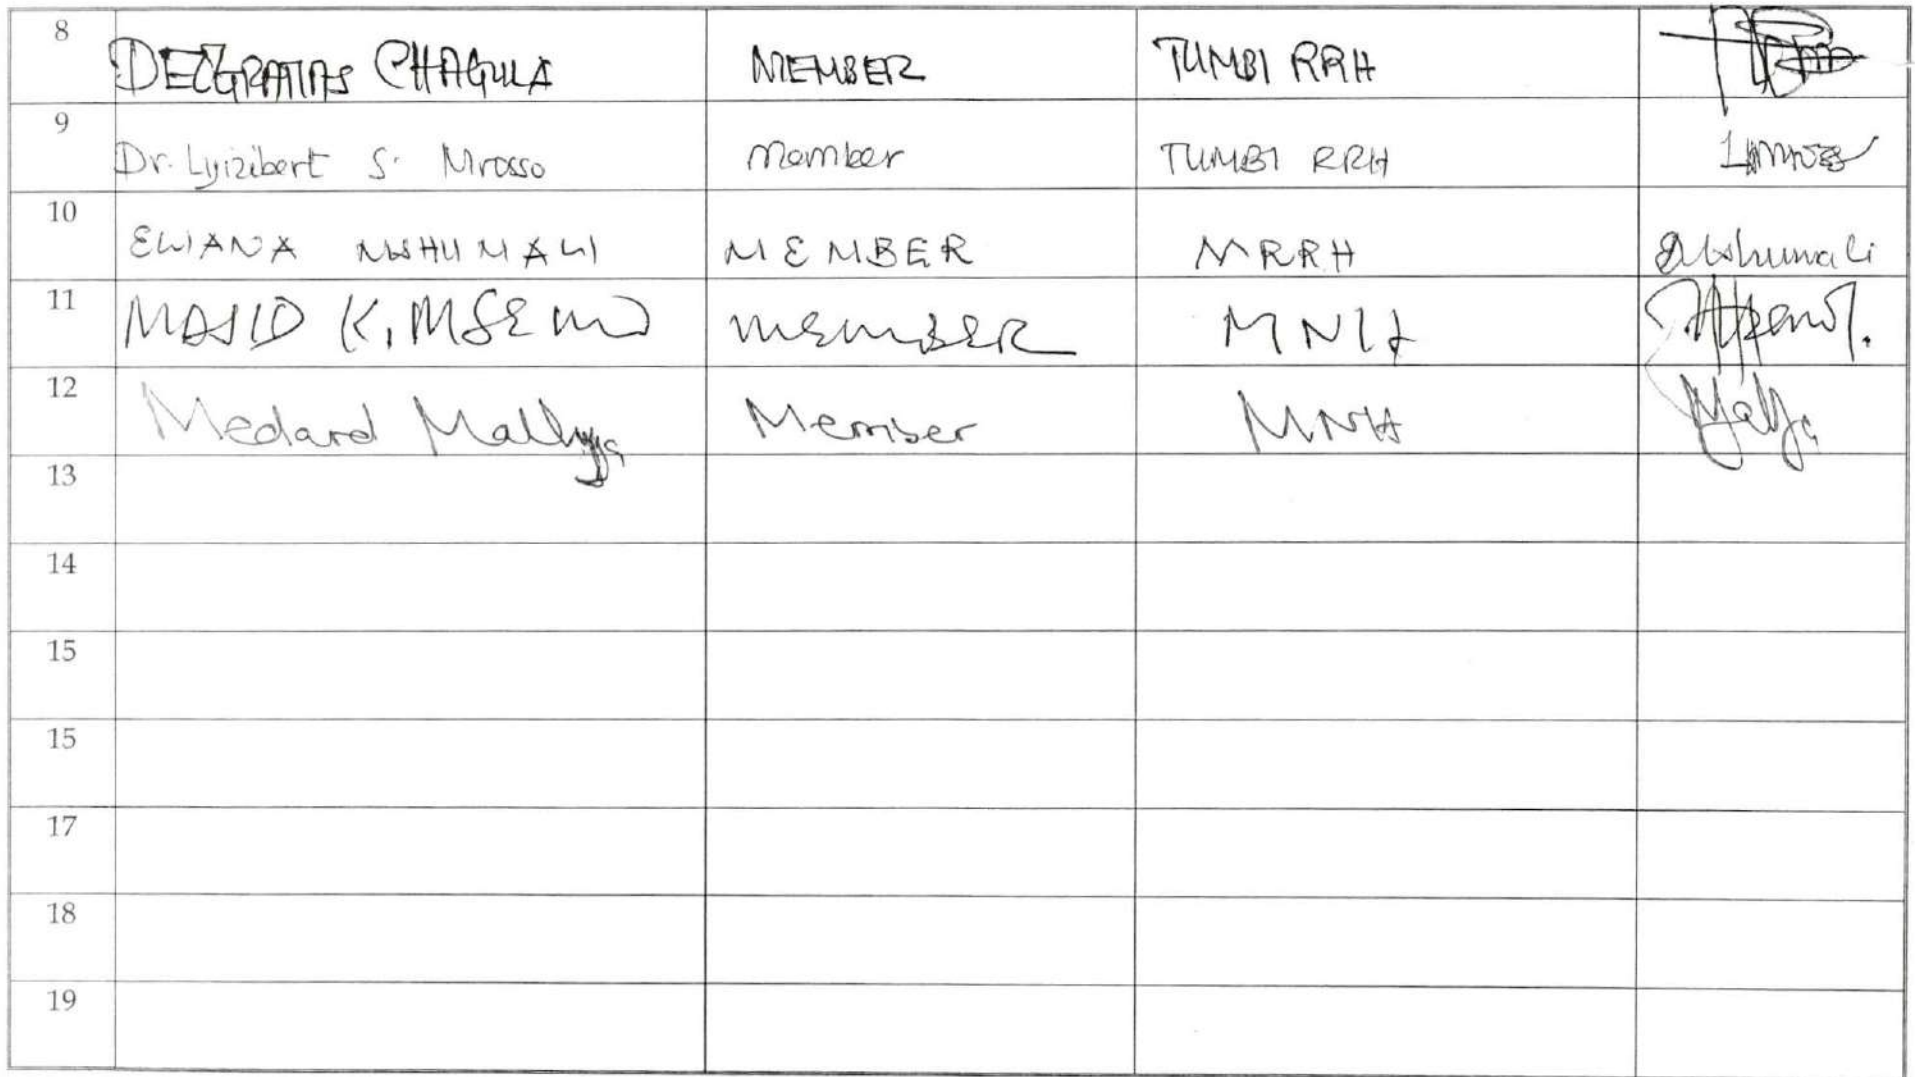 8 DEOGRATIAS CHAGULA MEMBER TUMBI RRH
9 Dr. Lyizibert S. Mrosso Member TUMBI RRH
10 ELIANA MSHUMALI MEMBER MRRH Mshumali
11 MAJID K. MSEMO MEMBER MNH
12 Medard Mallya Member MNH
13
14
15
15
17
18
19